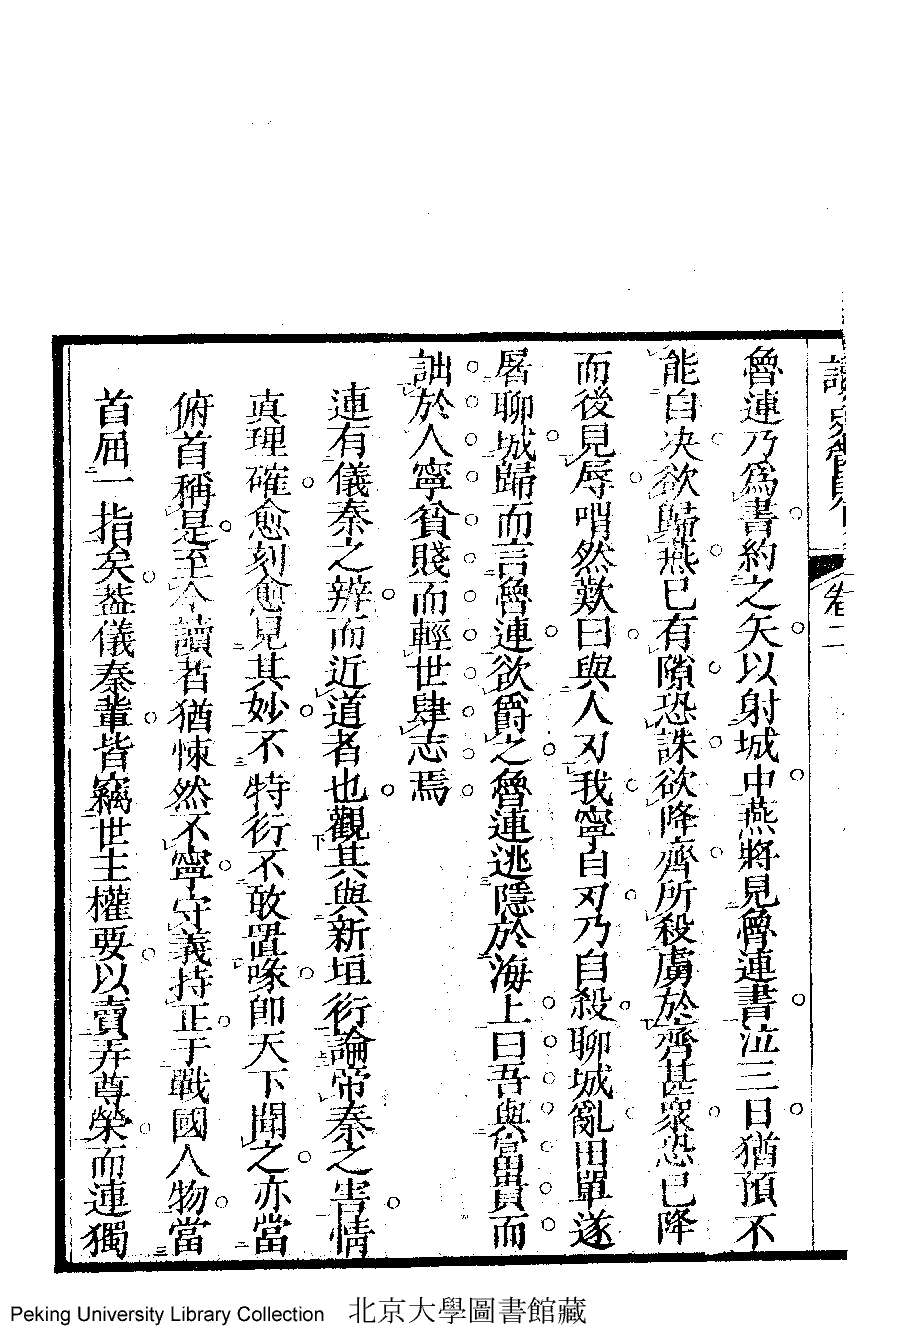 讀史
卷二
魯連乃爲書約之矢以射城中燕將見魯連書泣三日猶預不
能自决欲歸燕已有隙恐誅欲降齊所殺虜於齊甚衆恐已降
而後見辱喟然歎曰與人刃我寧自刃乃自殺聊城亂田單遂
屠聊城歸而言魯連欲爵之魯連逃隱於海上曰吾與富貴而
詘於人寧貧賤而輕世肆志焉
連有儀秦之辨而近道者也觀其與新垣衍論帝秦之害情
真理確愈刻愈見其妙不特衍不敢置喙卽天下聞之亦當
俯首稱是至今讀者猶悚然不寧守義持正于戰國人物當
首屈一指矣葢儀秦輩皆竊世主權要以賣弄尊榮而連獨
Peking University Library Collection 北京大學圖書館藏